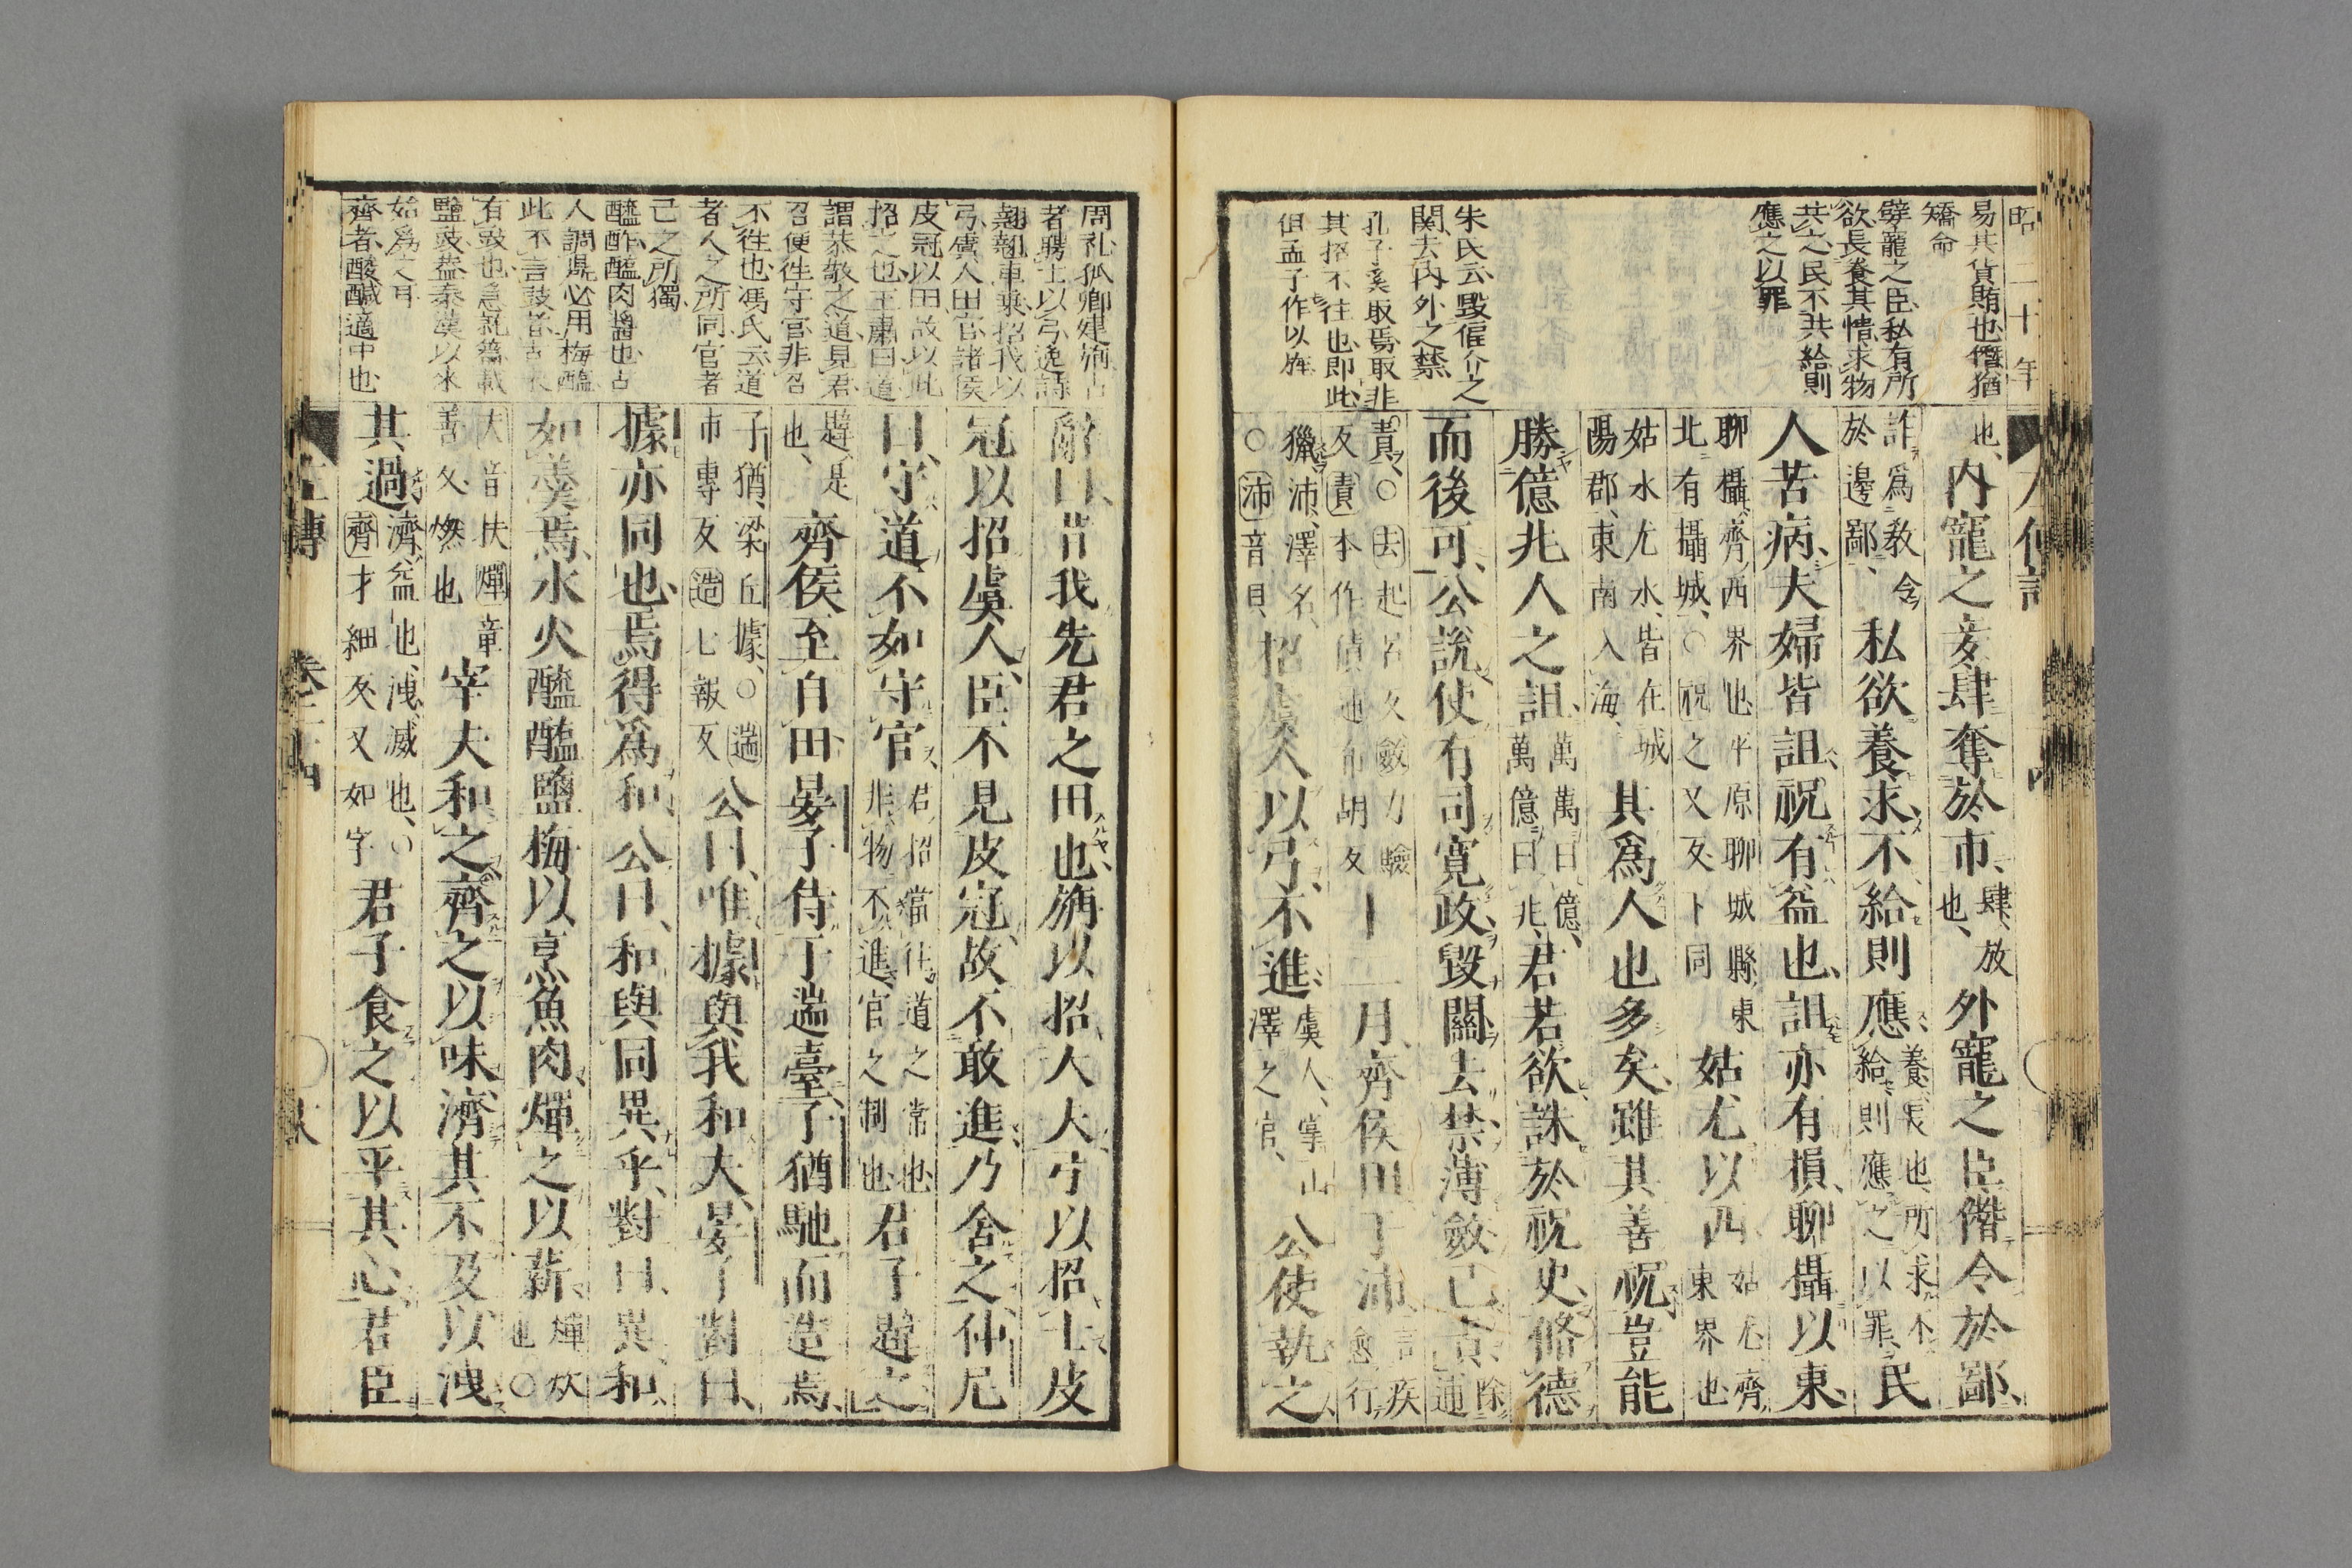 昭二十年
易其貨賄也僭猶
矯命
孽寵之臣私有所
欲長養其情求物
共之民不共給則
應之以罪
朱氏云毀偪介之
関去内外之禁
孔子奚取焉取非
其招不往也即此
但孟子作以旌
也、內寵之妾肆奪於市、肆、放也、外寵之臣僭令於鄙、
詐爲敎令於邊鄙、私欲養求不給則應、養、長也所求不給、則應之以罪、民
人苦病、夫婦皆詛、祝有益也、詛亦有損、聊攝以東、
聊攝、齊西界也平原聊城縣東北有攝城、○祝之又反下同姑尤以西姑尤齊東界也
姑水尤水、皆在城陽郡、東南入海、其爲人也多矣、雖其善祝豈能
勝億兆人之詛、萬萬曰億、萬億曰兆、君若欲誅於祝史、脩德
而後可、公說、使有司寬政、毀關去禁薄斂已責、除逋
責、○去起呂反斂力驗反責本作債逋布胡反十二月、齊侯田于沛、言疾愈行
獵、沛、澤名、○沛音貝、招虞人以弓、不進、虞人、掌山澤之官、公使執之
周礼孤卿建旃古
者聘士以弓逸詩
翹翹車乗招我以
弓虞人田官諸侯
皮冠以田故以此
招之也王肅曰道
謂恭敬之道見君
召便徃守官非召
不徃也馮氏云道
者人之所同官者
己之所獨
醯酢醢肉醬也古
人調鼎必用梅醢
此不言豉者古未
有豉也急就篇載
鹽豉蓋秦漢以來
始爲之耳
齊者酸鹹適中也
辭曰、昔我先君之田也、旃以招大夫、弓以招士、皮
冠以招虞人、臣不見皮冠、故不敢進、乃舍之、仲尼
曰、守道不如守官、君招當往、道之常也非、物不進、官之制也君子韙之
韙、是也、齊侯至自田、晏子侍于遄臺、子猶馳而造焉、
子猶、梁丘據、○遄市專反造七報反公曰、唯據與我和夫、晏子對曰、
據亦同也、焉得爲和、公曰、和與同異乎、對曰、異、和
如羹焉、水火醯醢鹽梅以烹魚肉、燀之以薪、燀炊也○
夫音扶燀章善反燃也宰夫和之、齊之以味、濟其不及以洩
其過濟、益也、洩、減也、○齊才細反又如字君子食之以平其心、君臣
左傳 卷二十四